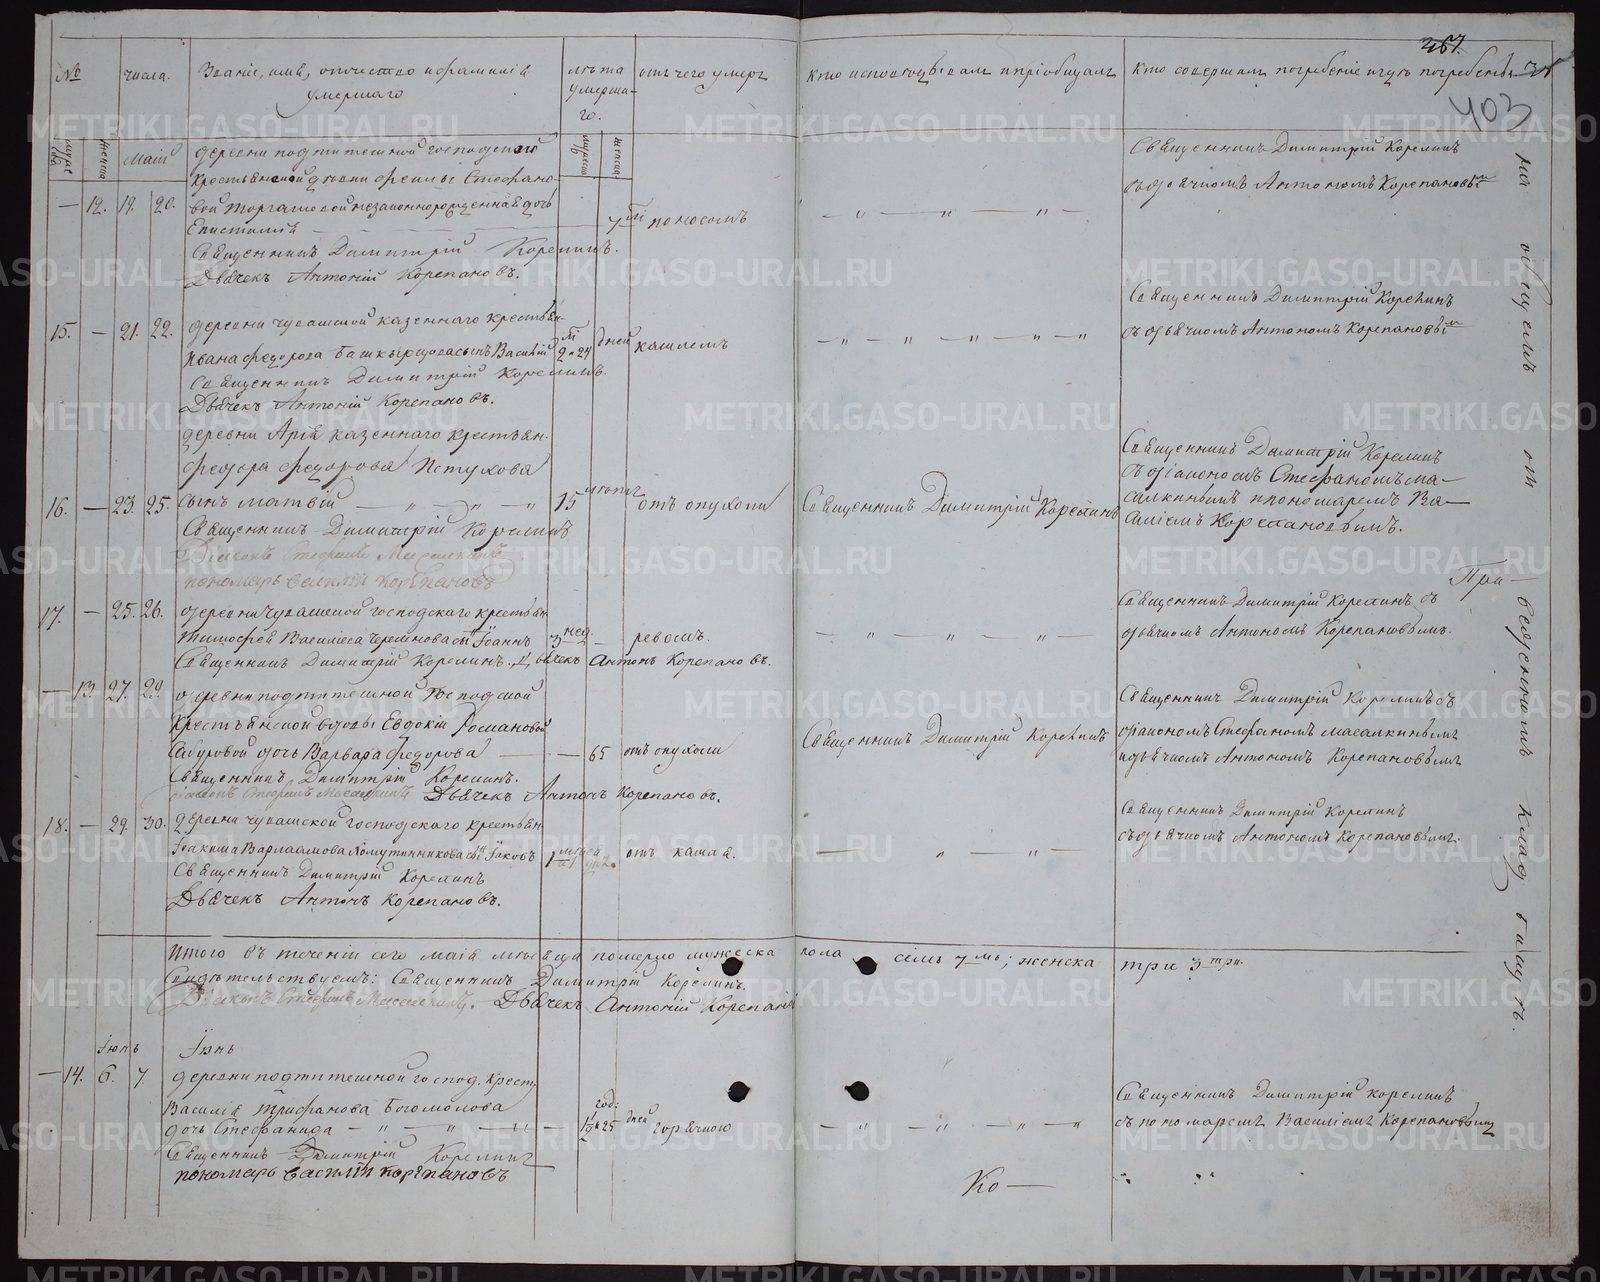 267.
403
№ числа. Званіе, имя, отчество и фамилія
умершаго
лѣта
умерша-
го.
отъ чего умеръ
кто исповѣдывалъ и пріобщалъ
кто совершалъ погребеніе и гдѣ погребены
Маій
деревни Подпитешной господской
крестьянской дѣвки Феклы Стефано-
— 12. 18. 20. вой Торгашевой незаконнорожденная дочь
Епистимія 7 поносомъ
Священникъ Димитрій Корелинъ
съ дьячкомъ Антономъ Корепановымъ
Священникъ Димитрій Корелинъ.
Дьячекъ Антоній Корепановъ.
15. — 21. 22. деревни Чувашской казеннаго крестьян.
Ивана Федорова Башкырцова сынъ Василій 2 и 24 дней кашлемъ
Священникъ Димитрій Корелинъ
съ дьячкомъ Антономъ Корепановымъ
Священникъ Димитрій Корелинъ.
Дьячекъ Антоній Корепановъ.
деревни Арія казеннаго крестьян.
Федора Федорова Петухова
16. — 23. 25. сынъ Матвій 15 отъ опухоли
Священникъ Димитрій Корелинъ
Священникъ Димитрій Корелинъ
съ діакономъ Стефаномъ Ма-
салкинымъ и пономаремъ Ва-
силіемъ Корепановымъ.
Священникъ Димитрій Корелинъ
Діаконъ Стефанъ Масалкинъ
пономарь Василій Корепановъ
17. — 25. 26. деревни Чувашской господскаго крестьян
Тимофея Васильева сынъ Іоаннъ 3 нед. — ревомъ.
Священникъ Димитрій Корелинъ съ
дьячкомъ Антономъ Корепановымъ.
Священникъ Димитрій Корелинъ. Дьячекъ Антонъ Корепановъ.
— 13. 27. 29. деревни Подпитешной господской
крестьянской вдовы Евдокіи Романовой
дочь Варвара Федорова — 65 отъ опухоли
Священникъ Димитрій Корелинъ
Священникъ Димитрій Корелинъ съ
діакономъ Стефаномъ Масалкинымъ
и дьячкомъ Антономъ Корепановымъ
Священникъ Димитрій Корелинъ.
діаконъ Стефанъ Масалкинъ Дьячекъ Антонъ Корепановъ.
18. — 29. 30. деревни Чувашской господскаго крестьян.
Іоакима Варлаамова Хомутинникова сынъ Іаковъ 1 отъ кашля.
Священникъ Димитрій Корелинъ
съ дьячкомъ Антономъ Корепановымъ.
Священникъ Димитрій Корелинъ
Дьячекъ Антонъ Корепановъ.
Итого въ теченіи сего маія мѣсяца померло мужеска пола семь 7мь; женска три 3 три.
Свидѣтельствуемъ: Священникъ Димитрій Корелинъ.
Діаконъ Стефанъ Масалкинъ. Дьячекъ Антоній Корепановъ
Іюнь Іюнь
— 14. 6. 7. деревни Подпитешной господ. крест.
Василія Трифанова Богомолова
дочь Стефанида — 1 и 25 дней горячкою
Священникъ Димитрій Корелинъ
съ пономаремъ Василіемъ Корепановымъ
Священникъ Димитрій Корелинъ
пономарь Василій Корепановъ
Ко—
на общемъ При-
веденномъ кладбищѣ.
METRIKI.GASO-URAL.RU